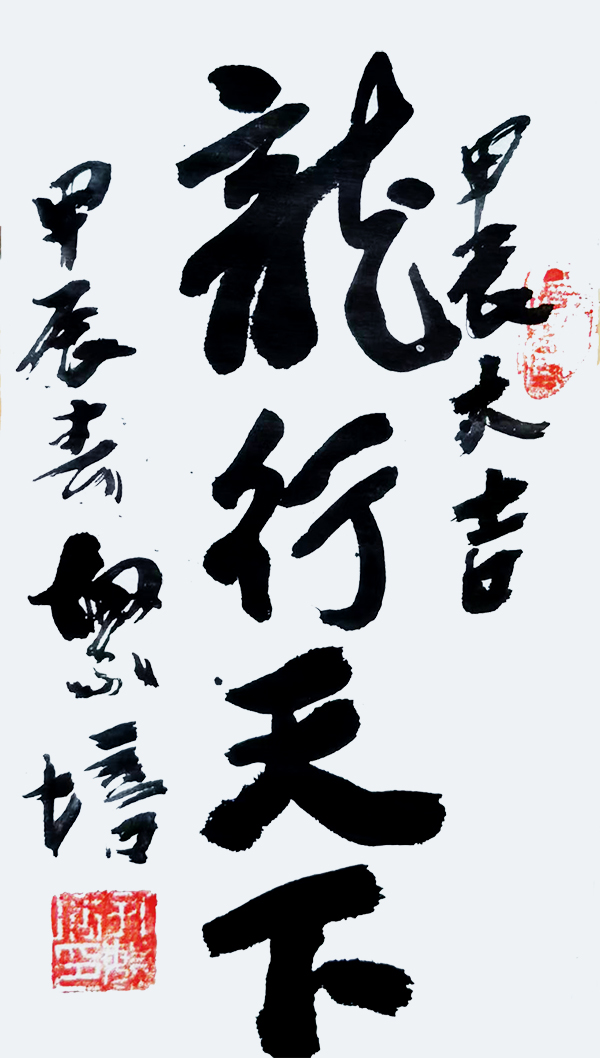 甲辰大吉
龍行天下
甲辰春繁培